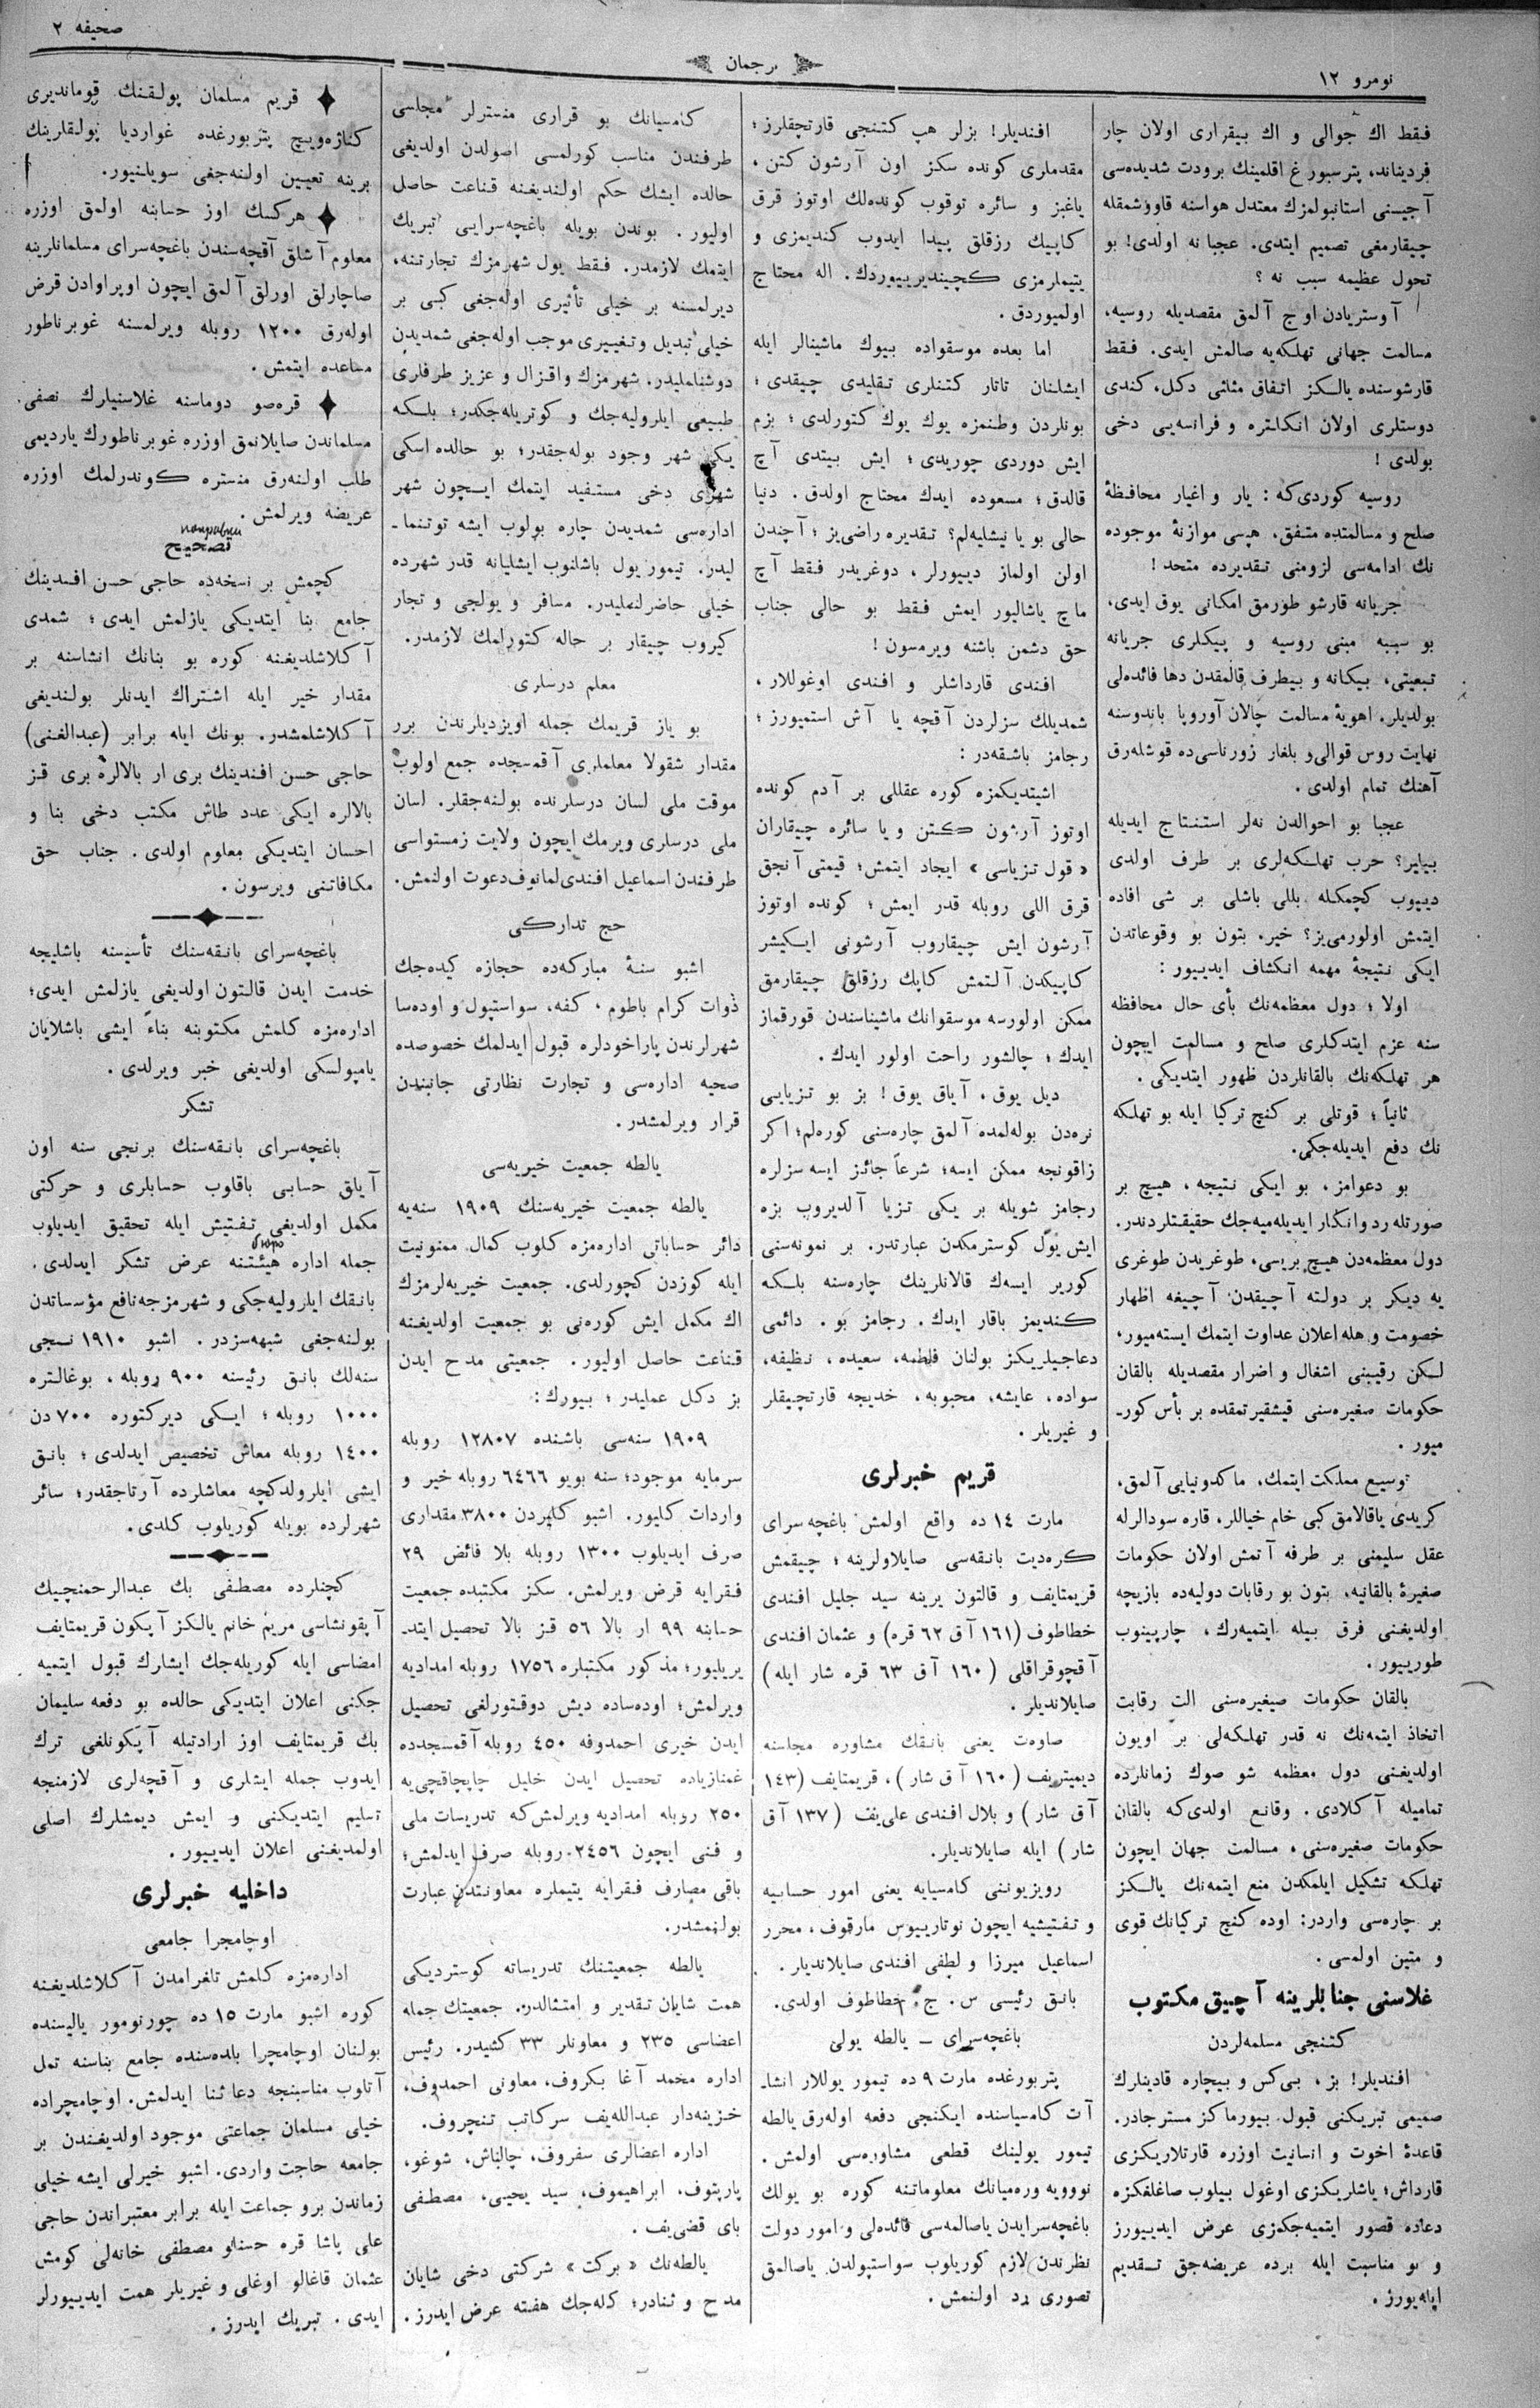 نومرو ١٢
ترجمان
صحیفه ٢
فقط اك جوالی و اك بیقراری اولان چار
فردیناند، پترسبورغ اقلیمینك برودت شدیده‌سی
آجیسنی استانبولمزك معتدل هواسنه قاووشمقله
چیقارمغی تصمیم ایتدی. عجبا نه اولدی! بو
تحول عظیمه سبب نه ؟
آوستریادن اوج آلمق مقصدیله روسیه،
مسالمت جهانی تهلكه‌یه صالمش ایدی. فقط
قارشوسنده یالكز اتفاق مثلثی دكل، كندی
دوستلری اولان انكلتره و فرانسه‌یی دخی
بولدی !
روسیه كوردی‌كه : یار و اغیار محافظهٔ
صلح و مسالمتده متفق، هپسی موازنهٔ موجوده
نك ادامه‌سی لزومنی تقدیرده متحد !
جریانه قارشو طورمق امكانی یوق ایدی،
بو سببه مبنی روسیه و پیكلری جریانه
تبعیتی، بیكانه و بیطرف قالمقدن دها فائده‌لی
بولدیلر. اهویهٔ مسالمت چالان آوروپا باندوسنه
نهایت روس قوالی و بلغار زورناسی‌ده قوشله‌رق
آهنك تمام اولدی .
عجبا بو احوالدن نه‌لر استنتاج ایدیله
بیلیر؟ حرب تهلكه‌لری بر طرف اولدی
دییوب كچمكله بللی باشلی بر شی افاده
ایتمش اولورمی‌یز؟ خیر. بتون بو وقوعاتدن
ایكی نتیجهٔ مهمه انكشاف ایدییور :
اولا ؛ دول معظمه‌نك بأی حال محافظه
سنه عزم ایتدكلری صلح و مسالمت ایچون
هر تهلكه‌نك بالقانلردن ظهور ایتدیكی .
ثانیاً ؛ قوتلی بر كنج تركیا ایله بو تهلكه
نك دفع ایدیله‌جكی.
بو دعوامز، بو ایكی نتیجه، هیچ بر
صورتله رد و انكار ایدیله‌میه‌جك حقیقتلردندر.
دول معظمه‌دن هیچ بریسی، طوغریدن طوغری
یه دیكر بر دولته آچیقدن آچیغه اظهار
خصومت و هله اعلان عداوت ایتمك ایسته‌میور،
لكن رقیبنی اشغال و اضرار مقصدیله بالقان
حكومات صغیره‌سنی قیشقیرتمقده بر بأس كور-
میور .
توسیع مملكت ایتمك، ماكدونیایی آلمق،
كریدی یاقالامق كبی خام خیاللر، قاره سودالرله
عقل سلیمنی بر طرفه آتمش اولان حكومات
صغیرهٔ بالقانیه، بتون بو رقابات دولیه‌ده بازیچه
اولدیغنی فرق بیله ایتمیه‌رك ، چارپینوب
طورییور .
بالقان حكومات صیغیره‌سنی الت رقابت
اتخاذ ایتمه‌نك نه قدر تهلكه‌لی بر اویون
اولدیغنی دول معظمه شو صوك زمانلرده
تمامیله آكلادی. وقانع اولدی‌كه بالقان
حكومات صغیره‌سنی ، مسالمت جهان ایچون
تهلكه تشكیل ایلمكدن منع ایتمه‌نك یالكز
بر چاره‌سی واردر: اوده كنج تركیانك قوی
و متین اولمسی .
غلاسنی جنابلرینه آچیق مكتوب
كتنجی مسلمه‌لردن
افندیلر! بز، بی‌كس و بیچاره قادینلرك
صمیمی تبریكنی قبول بیورماكز مسترجادر.
قاعدهٔ اخوت و انسانیت اوزره قارتلاریكزی
قارداش؛ یاشلریكزی اوغول بیلوب صاغلفكزه
دعاده قصور ایتمیه‌جكمزی عرض ایدییورز
و بو مناسبت ایله برده عریضه‌جق تقدیم
ایله‌یورز .
افندیلر! بزلر هپ كتنجی قارتچقلرز ؛
مقدملری كونده سكز اون آرشون كتن ،
یاغبز و سائره توقوب كونده‌لك اوتوز قرق
كاپیك رزقلق پیدا ایدوب كندیمزی و
یتیملرمزی كچیندیرییوردك. اله محتاج
اولمیوردق .
اما بعده موسقواده بیوك ماشینالر ایله
ایشلنان تاتار كتنلری تقلیدی چیقدی ؛
بونلردن وطنمزه یوك یوك كتورلدی ؛ بزم
ایش دوردی چوریدی ؛ ایش بیتدی آچ
قالدق ؛ مسعوده ایدك محتاج اولدق . دنیا
حالی بو یا نیشلیه‌لم؟ تقدیره راضی‌یز ؛ آچندن
اولن اولماز دییورلر، دوغریدر فقط آچ
ماچ یاشالیور ایمش فقط بو حالی جناب
حق دشمن باشنه ویرمسون !
افندی قارداشلر و افندی اوغوللار ،
شمدیلك سزلردن آقچه یا آش استمیورز ؛
رجامز باشقه‌در :
اشیتدیكمزه كوره عقللی بر آدم كونده
اوتوز آرشون كتن و یا سائره چیقاران
« قول تزیاسی » ایجاد ایتمش؛ قیمتی آنجق
قرق اللی روبله قدر ایمش ؛ كونده اوتوز
آرشون ایش چیقاروب آرشونی ایكیشر
كاپیكدن آلتمش كاپك رزقلق چیقارمق
ممكن اولورسه موسقوانك ماشیناسندن قورقماز
ایدك ؛ چالشور راحت اولور ایدك .
دیل یوق ، آیاق یوق ! بز بو تزیایی
نره‌دن بوله‌لمده آلمق چاره‌سنی كوره‌لم؛ اكر
زاقونجه ممكن ایسه؛ شرعاً جائز ایسه سزلره
رجامز شویله بر یكی تزیا آلدیروب بزه
ایش یول كوسترمكدن عبارتدر. بر نمونه‌سنی
كوریر ایسه‌ك قالانلرینك چاره‌سنه بلكه
كندیمز باقار ایدك . رجامز بو . دائمی
دعاجیلریكز بولنان فاطمه، سعیده ، نظیفه،
سواده ، عایشه، محبوبه ، خدیجه قارتچیقلر
و غیریلر .
قریم خبرلری
مارت ١٤ ده واقع اولمش باغچه‌سرای
كره‌دیت بانقه‌سی صایلاولرینه ؛ چیقمش
قریمتایف و قالتون یرینه سید جلیل افندی
خطاطوف (١٦١ آق ٦٢ قره) و عثمان افندی
آقچوقراقلی ( ١٦٠ آق ٦٣ قره شار ایله )
صایلاندیلر .
صاوه‌ت یعنی بانقك مشاوره مجلسنه
دیمیتریف ( ١٦٠ آق شار ) ، قریمتایف (١٤٣
آق شار ) و بلال افندی علی‌یف ( ١٣٧ آق
شار ) ایله صایلاندیلر.
رویزیوننی كامسیایه یعنی امور حسابیه
و تفتیشیه ایچون نوتاریوس مارقوف ، محرر
اسماعیل میرزا و لطفی افندی صایلاندیلر .
بانق رئیسی س . ج . خطاطوف اولدی.
باغچه‌سرای – یالطه یولی
پتربورغده مارت ٩ ده تیمور یوللار انشا-
آت كامسیاسنده ایكنجی دفعه اوله‌رق یالطه
تیمور یولینك قطعی مشاوره‌سی اولمش .
نوویه وره‌میانك معلوماتنه كوره بو یولك
باغچه‌سرایدن یاصالمه‌سی فائده‌لی و امور دولت
نظرندن لازم كوریلوب سواستپولدن یاصالمق
تصوری رد اولنمش .
كامسیانك بو قراری منسترلر مجلسی
طرفندن مناسب كورلمسی اصولدن اولدیغی
حالده ایشك حكم اولندیغنه قناعت حاصل
اولیور . بوندن بویله باغچه‌سرایی تبریك
ایتمك لازمدر. فقط یول شهرمزك تجارتنه،
دیرلمسنه بر خیلی تأثیری اوله‌جغی كبی بر
خیلی تبدیل و تغییری موجب اوله‌جغی شمدیدن
دوشناملیدر. شهرمزك واقزال و عزیز طرفلری
طبیعی ایلرولیه‌جك و كوتریله‌جكدر؛ بلكه
یكی شهر وجود بوله‌جقدر؛ بو حالده اسكی
شهری دخی مستفید ایتمك ایچون شهر
اداره‌سی شمدیدن چاره بولوب ایشه توتنما-
لیدر. تیمور یول باشلانوب ایشلیانه قدر شهرده
خیلی حاضرلنملیدر. مسافر و یولجی و تجار
كیروب چیقار بر حاله كتورلمك لازمدر.
معلم درسلری
بو یاز قریمك جمله اویزدیلرندن برر
مقدار شقولا معلملری آقمسجده جمع اولوب
موقت ملی لسان درسلرنده بولنه‌جقلر. لسان
ملی درسلری ویرمك ایچون ولایت زمستواسی
طرفندن اسماعیل افندی لمانوف دعوت اولنمش.
حج تداركی
اشبو سنهٔ مباركه‌ده حجازه كیده‌جك
ذوات كرام باطوم ، كفه، سواستپول و اوده‌سا
شهرلرندن پاراخودلره قبول ایدلمك خصوصده
صحیه اداره‌سی و تجارت نظارتی جانبندن
قرار ویرلمشدر .
یالطه جمعیت خیریه‌سی
یالطه جمعیت خیریه‌سنك ١٩٠٩ سنه‌یه
دائر حساباتی اداره‌مزه كلوب كمال ممنونیت
ایله كوزدن كچورلدی. جمعیت خیریه‌لرمزك
اك مكمل ایش كوره‌نی بو جمعیت اولدیغنه
قناعت حاصل اولیور . جمعیتی مدح ایدن
بز دكل عملیدر ؛ بیورك :
١٩٠٩ سنه‌سی باشنده ١٢٨٠٧ روبله
سرمایه موجود؛ سنه بویو ٦٤٦٦ روبله خیر و
واردات كلیور. اشبو كلیردن ٣٨٠٠ مقداری
صرف ایدیلوب ١٣٠٠ روبله بلا فائض ٢٩
فقرایه قرض ویرلمش. سكز مكتبده جمعیت
حسابنه ٩٩ ار بالا ٥٦ قز بالا تحصیل ایتد-
یریلیور؛ مذكور مكتبلره ١٧٥٦ روبله امدادیه
ویرلمش؛ اوده‌ساده دیش دوقتورلغی تحصیل
ایدن خیری احمدوفه ٤٥٠ روبله آقمسجدده
غمنازیاده تحصیل ایدن خلیل چاپچاقچی‌یه
٢٥٠ روبله امدادیه ویرلمش‌كه تدریسات ملی
و فنی ایچون ٢٤٥٦ روبله صرف ایدلمش؛
باقی مصارف فقرایه یتیملره معاونتدن عبارت
بولنمشدر.
یالطه جمعیتنك تدریساته كوستردیكی
همت شایان تقدیر و امتثالدر. جمعیتك جمله
اعضاسی ٢٣٥ و معاونلر ٣٣ كشیدر. رئیس
اداره محمد آغا بكروف، معاونی احمدوف،
خزینه‌دار عبدالله‌یف سركاتب تنچروف.
اداره اعضالری سفروف، چالباش، شوغو،
پارپتوف، ابراهیموف، سید یحیی، مصطفی
بای قضی‌یف .
یالطه‌نك « بركت » شركتی دخی شایان
مدح و ثنادر؛ كله‌جك هفته عرض ایدرز .
قریم مسلمان پولقنك قوماندیری
كنازه‌ویچ پتربورغده غواردیا پولقلرینك
برینه تعیین اولنه‌جغی سویلنیور.
هركسك اوز حسابنه اولمق اوزره
معلوم آشلق آقچه‌سندن باغچه‌سرای مسلمانلرینه
صاچارلق اورلق آلمق ایچون اوپراوادن قرض
اوله‌رق ١٢٠٠ روبله ویرلمسنه غوبرناطور
مساعده ایتمش .
قره‌صو دوماسنه غلاسنیلرك نصفی
مسلماندن صایلانمق اوزره غوبرناطورك یاردیمی
طلب اولنه‌رق منستره كوندرلمك اوزره
عریضه ویرلمش .
поправки
تصحیح
كچمش بر نسخه‌ده حاجی حسن افندینك
جامع بنا ایتدیكی یازلمش ایدی ؛ شمدی
آكلاشلدیغنه كوره بو بنانك انشاسنه بر
مقدار خیر ایله اشتراك ایدنلر بولندیغی
آكلاشلمشدر. بونك ایله برابر (عبدالغنی)
حاجی حسن افندینك بری ار بالالره بری قز
بالالره ایكی عدد طاش مكتب دخی بنا و
احسان ایتدیكی معلوم اولدی . جناب حق
مكافاتنی ویرسون .
باغچه‌سرای بانقه‌سنك تأسیسنه باشلیجه
خدمت ایدن قالتون اولدیغی یازلمش ایدی؛
اداره‌مزه كلمش مكتوبنه بناءً ایشی باشلایان
یامپولسكی اولدیغی خبر ویرلدی .
تشكر
باغچه‌سرای بانقه‌سنك برنجی سنه اون
آیلق حسابی باقلوب حسابلری و حركتی
مكمل اولدیغی تفتیش ایله تحقیق ایدیلوب
бюро
جمله اداره هیئتنه عرض تشكر ایدلدی .
بانقك ایلرولیه‌جكی و شهرمزجه نافع مؤسساتدن
بولنه‌جغی شبهه‌سزدر . اشبو ١٩١٠ نجی
سنه‌لك بانق رئیسنه ٩٠٠ روبله ، بوغالتره
١٠٠٠ روبله ؛ ایكی دیركتوره ٧٠٠ دن
١٤٠٠ روبله معاش تخصیص ایدلدی ؛ بانق
ایشی ایلرولدكچه معاشلرده آرتاجقدر؛ سائر
شهرلرده بویله كوریلوب كلدی.
كچنلرده مصطفی بك عبدالرحمنچیك
آپقونشاسی مریم خانم یالكز آپكون قریمتایف
امضاسی ایله كوریله‌جك ایشلرك قبول ایتمیه
جكنی اعلان ایتدیكی حالده بو دفعه سلیمان
بك قریمتایف اوز ارادتیله آپكونلغی ترك
ایدوب جمله ایشلری و آقچه‌لری لازمنجه
تسلیم ایتدیكنی و ایمش دیمشلرك اصلی
اولمدیغنی اعلان ایدییور .
داخلیه خبرلری
اوچامچرا جامعی
اداره‌مزه كلمش تلغرامدن آكلاشلدیغنه
كوره اشبو مارت ١٥ ده چورنومور یالیسنده
بولنان اوچامچرا بلده‌سنده جامع بناسنه تمل
آتلوب مناسبنجه دعا ثنا ایدلمش. اوچامچراده
خیلی مسلمان جماعتی موجود اولدیغندن بر
جامعه حاجت واردی. اشبو خیرلی ایشه خیلی
زماندن برو جماعت ایله برابر معتبراندن حاجی
علی پاشا قره حسنلو مصطفی خانه‌لی كومش
عثمان قاغالو اوغلی و غیریلر همت ایدییورلر
ایدی . تبریك ایدرز .